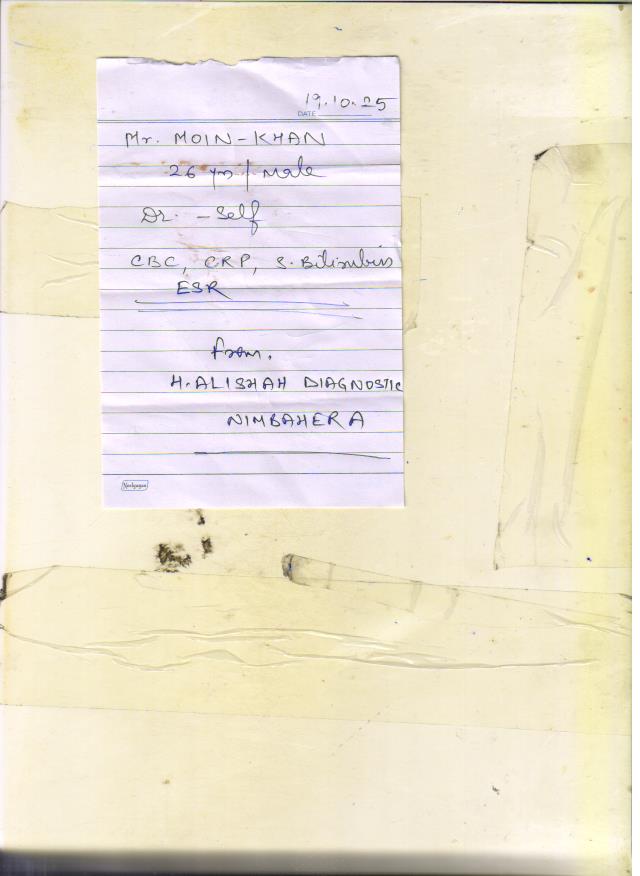 19.10.25
DATE
Mr. MOIN-KHAN
26 yrs / Male
Dr. - Self
CBC, CRP, S. Bilirubin
ESR
from.
H. ALISHAH DIAGNOSTIC
NIMBAHERA
Navlgagan